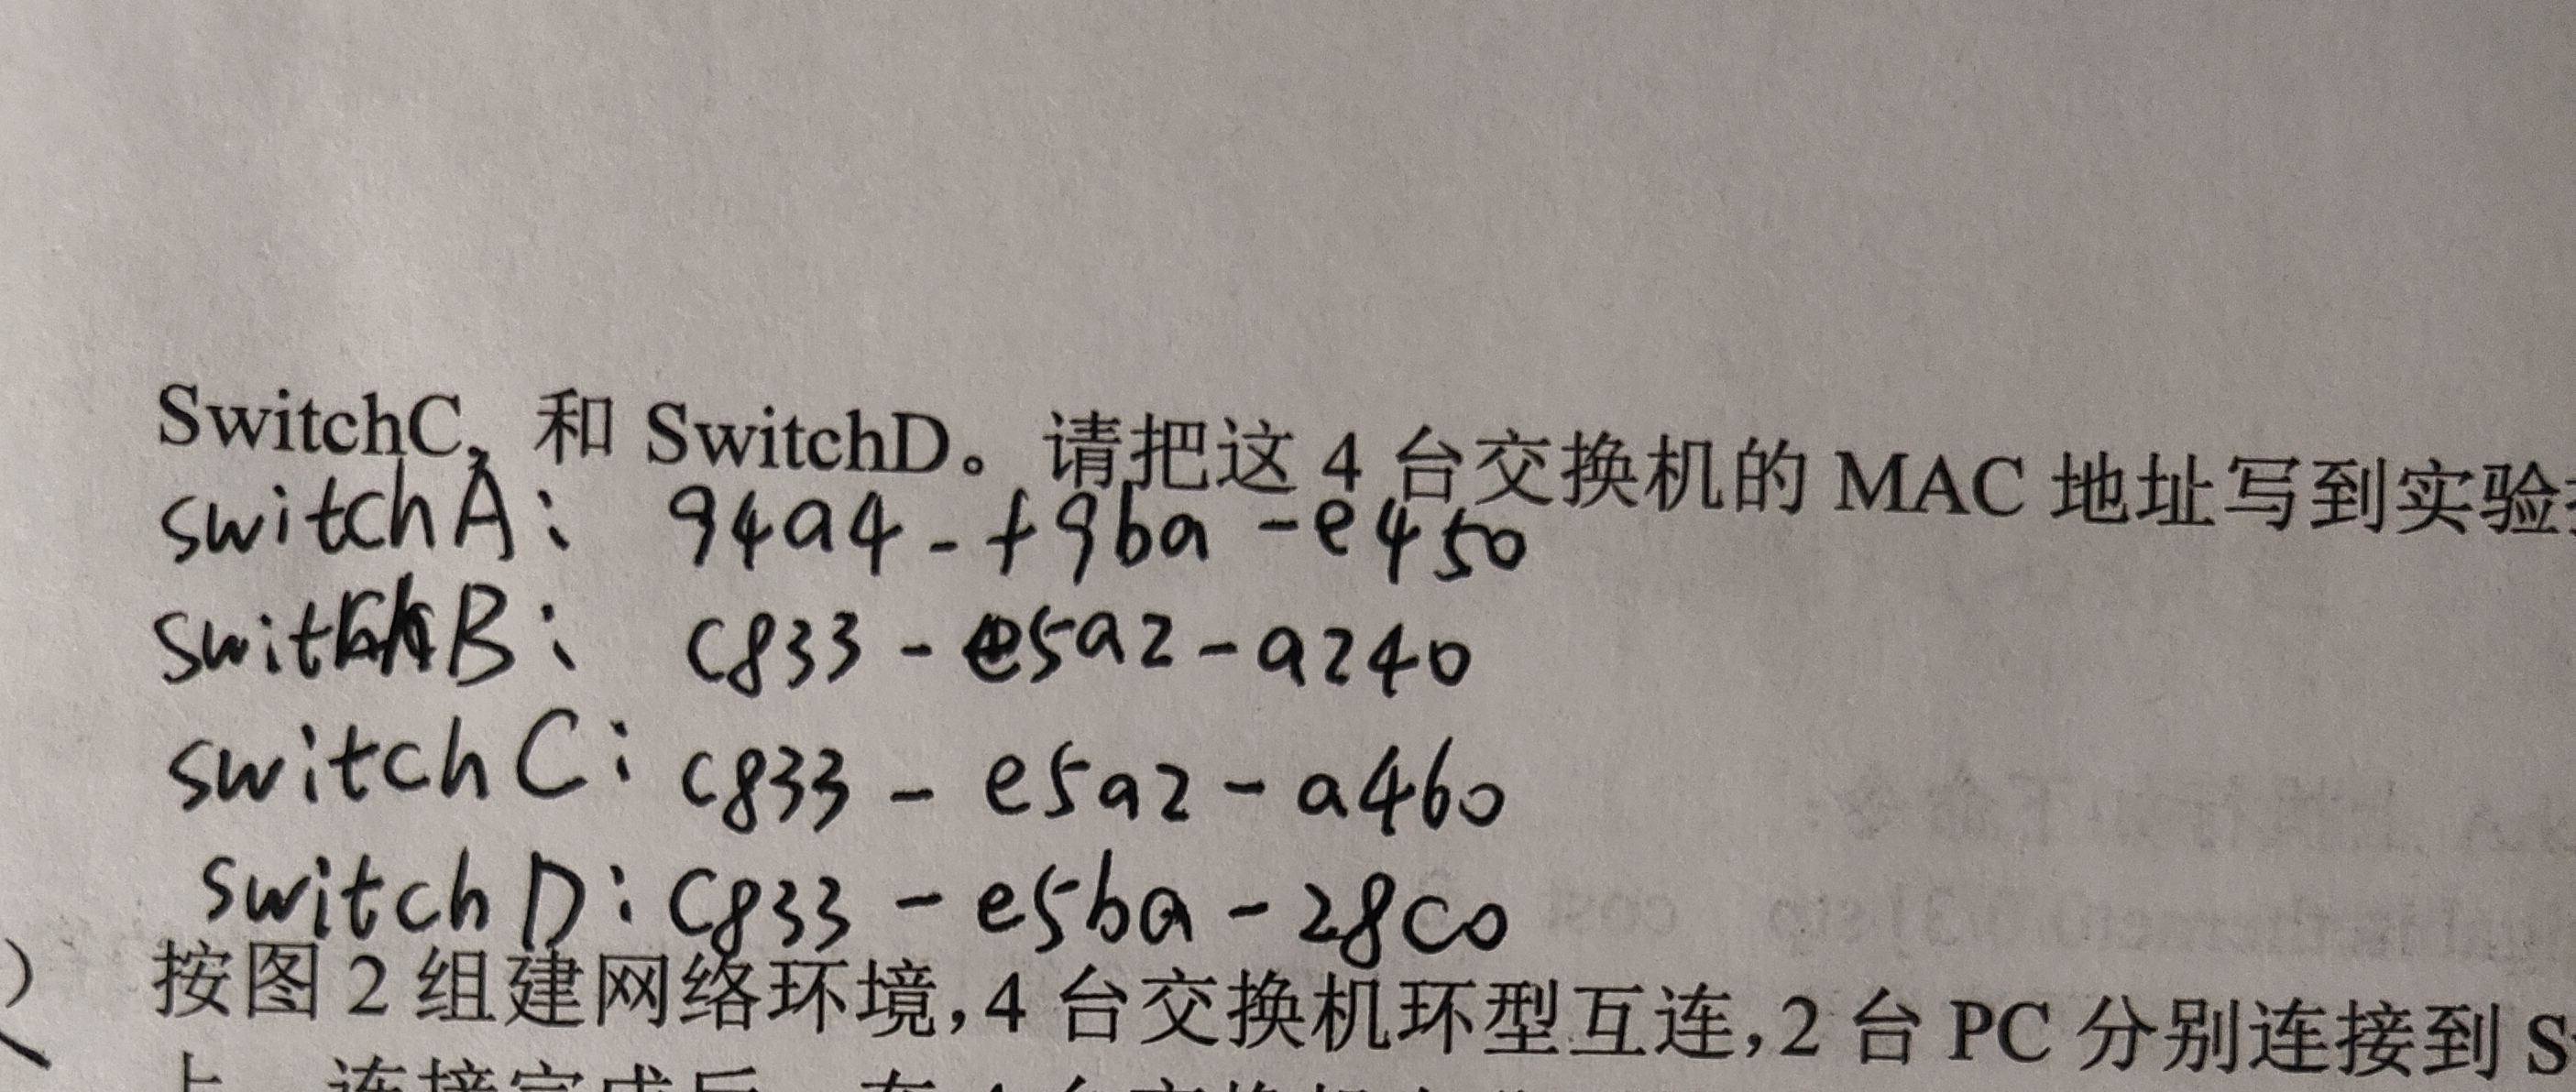 SwitchC，和 SwitchD。请把这 4 台交换机的 MAC 地址写到实验
switchA： 94a4-f9ba-e450
switchB： c833-e5a2-a240
switchC：c833-e5a2-a460
switchD：c833-e5ba-28c0
） 按图 2 组建网络环境，4 台交换机环型互连，2 台 PC 分别连接到 S
上 连接完成后